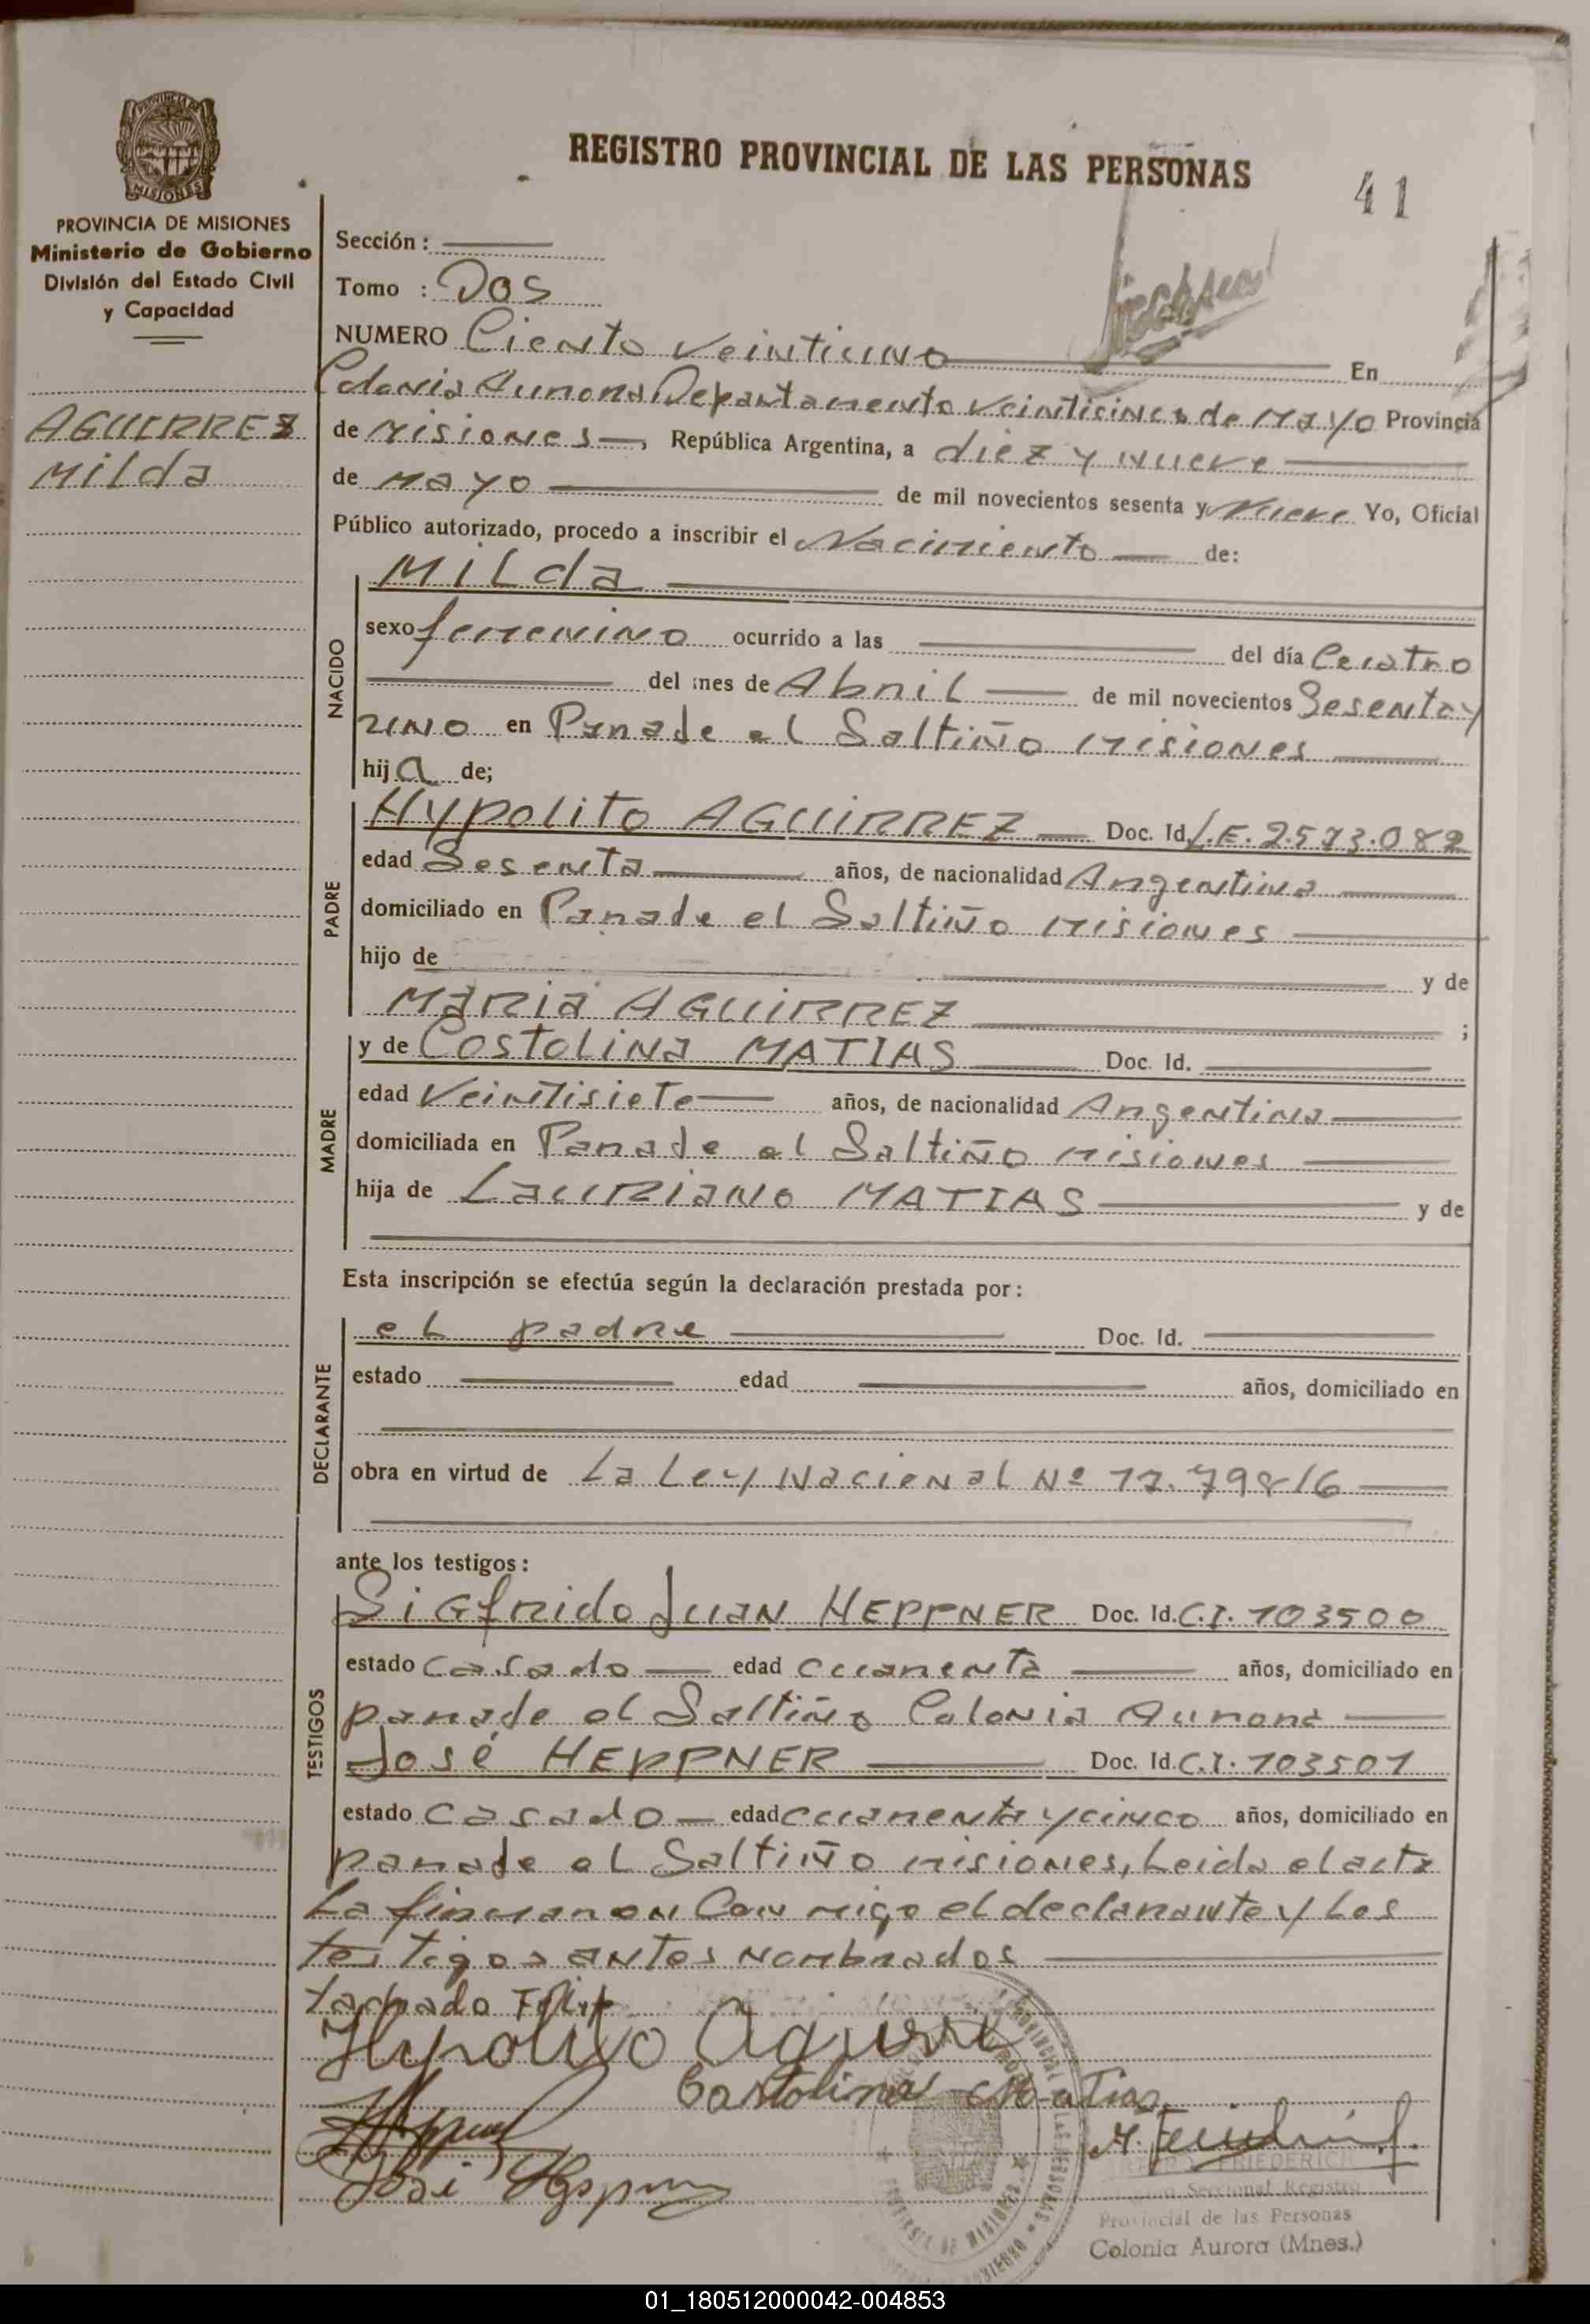 REGISTRO PROVINCIAL DE LAS PERSONAS
41
PROVINCIA DE MISIONES
Ministerio de Gobierno
División del Estado Civil
y Capacidad
AGUIRREZ
Milda
Sección :
Tomo : Dos
NUMERO Ciento veintiuno En
Colonia Aurora Departamento veinticinco de Mayo Provincia
de Misiones, República Argentina, a diez y nueve
de Mayo de mil novecientos sesenta y nueve Yo, Oficial
Público autorizado, procedo a inscribir el Nacimiento de:
NACIDO
Milda
sexo femenino ocurrido a las del día Cuatro
del mes de Abril de mil novecientos Sesenta y
uno en Parade el Saltiño Misiones
hija de;
PADRE
Hypolito AGUIRREZ Doc. Id. L.E. 2.573.082
edad Sesenta años, de nacionalidad Argentina
domiciliado en Parade el Saltiño Misiones
hijo de y de
Maria AGUIRREZ ;
MADRE
y de Costolina MATIAS Doc. Id.
edad Veintisiete años, de nacionalidad Argentina
domiciliada en Parade el Saltiño Misiones
hija de Lauriano MATIAS y de
Esta inscripción se efectúa según la declaración prestada por:
DECLARANTE
el padre Doc. Id.
estado edad años, domiciliado en
obra en virtud de La Ley Nacional Nº 17.798/6
ante los testigos:
TESTIGOS
Sigfrido Juan HEPPNER Doc. Id. C.I. 103500
estado Casado edad cuarenta años, domiciliado en
parade el Saltiño Colonia Aurora
José HEPPNER Doc. Id. C.I. 103501
estado Casado edad cuarenta y cinco años, domiciliado en
parade el Saltiño Misiones, Leida el acta
La firmaron Con migo el declarante y Los
testigos antes nombrados
tachado
Hypolito Aguirre
Costolina Matias
José Heppner
FRIEDERICH
Seccional Registro
Provincial de las Personas
Colonia Aurora (Mnes.)
01_180512000042-004853